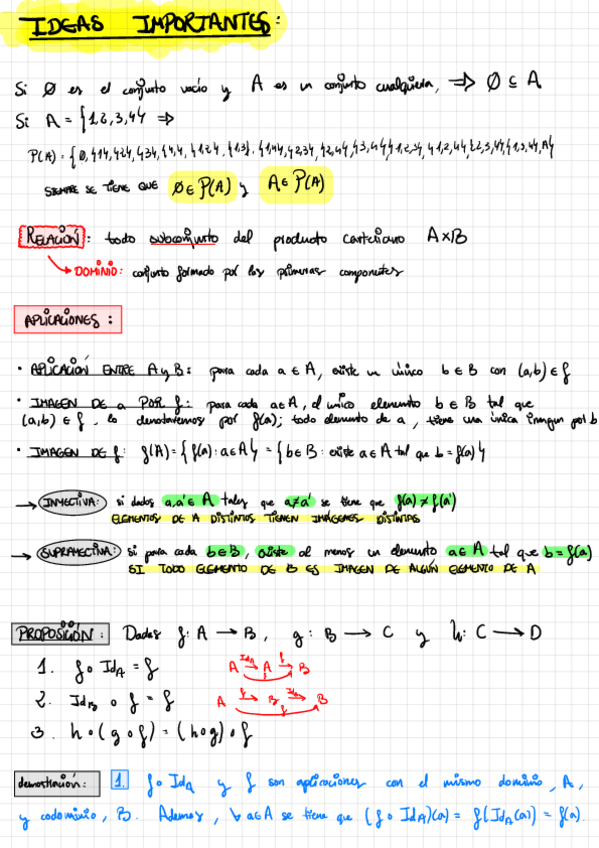 IDEAS IMPORTANTES:
Si ∅ es el conjunto vacío y A es un conjunto cualquiera, ⇒ ∅ ⊆ A
Si A = {1,2,3,4} ⇒
P(A) = {∅, {1}, {2}, {3}, {4},
SIEMPRE SE TIENE QUE ∅ ∈ P(A) y A ∈ P(A)
RELACIÓN: todo subconjunto del producto cartesiano A×B
→ DOMINIO: conjunto formado por las primeras componentes
APLICACIONES:
• APLICACIÓN ENTRE A y B: para cada a ∈ A, existe un único b ∈ B con (a,b) ∈ f
• IMAGEN DE a POR f: para cada a ∈ A, el único elemento b ∈ B tal que
(a,b) ∈ f, lo denotaremos por f(a); todo elemento de a, tiene una única imagen por b
• IMAGEN DE f: f(A) = {f(a) : a ∈ A} = {b ∈ B : existe a ∈ A tal que b = f(a)}
→ INYECTIVA: si dados a,a' ∈ A tales que a ≠ a' se tiene que f(a) ≠ f(a')
ELEMENTOS DE A DISTINTOS TIENEN IMÁGENES DISTINTAS
→ SUPRAYECTIVA: si para cada b ∈ B, existe al menos un elemento a ∈ A tal que b = f(a)
SI TODO ELEMENTO DE B ES IMAGEN DE ALGÚN ELEMENTO DE A
PROPOSICIÓN: Dadas f: A → B, g: B → C y h: C → D
1. f ∘ Id_A = f A →Id_A A →f B
2. Id_B ∘ f = f A →f B →Id_B B
f
3. h ∘ (g ∘ f) = (h ∘ g) ∘ f
demostración: 1. f ∘ Id_A y f son aplicaciones con el mismo dominio, A,
y codominio, B. Ademas, ∀ a ∈ A se tiene que (f ∘ Id_A)(a) = f(Id_A(a)) = f(a).